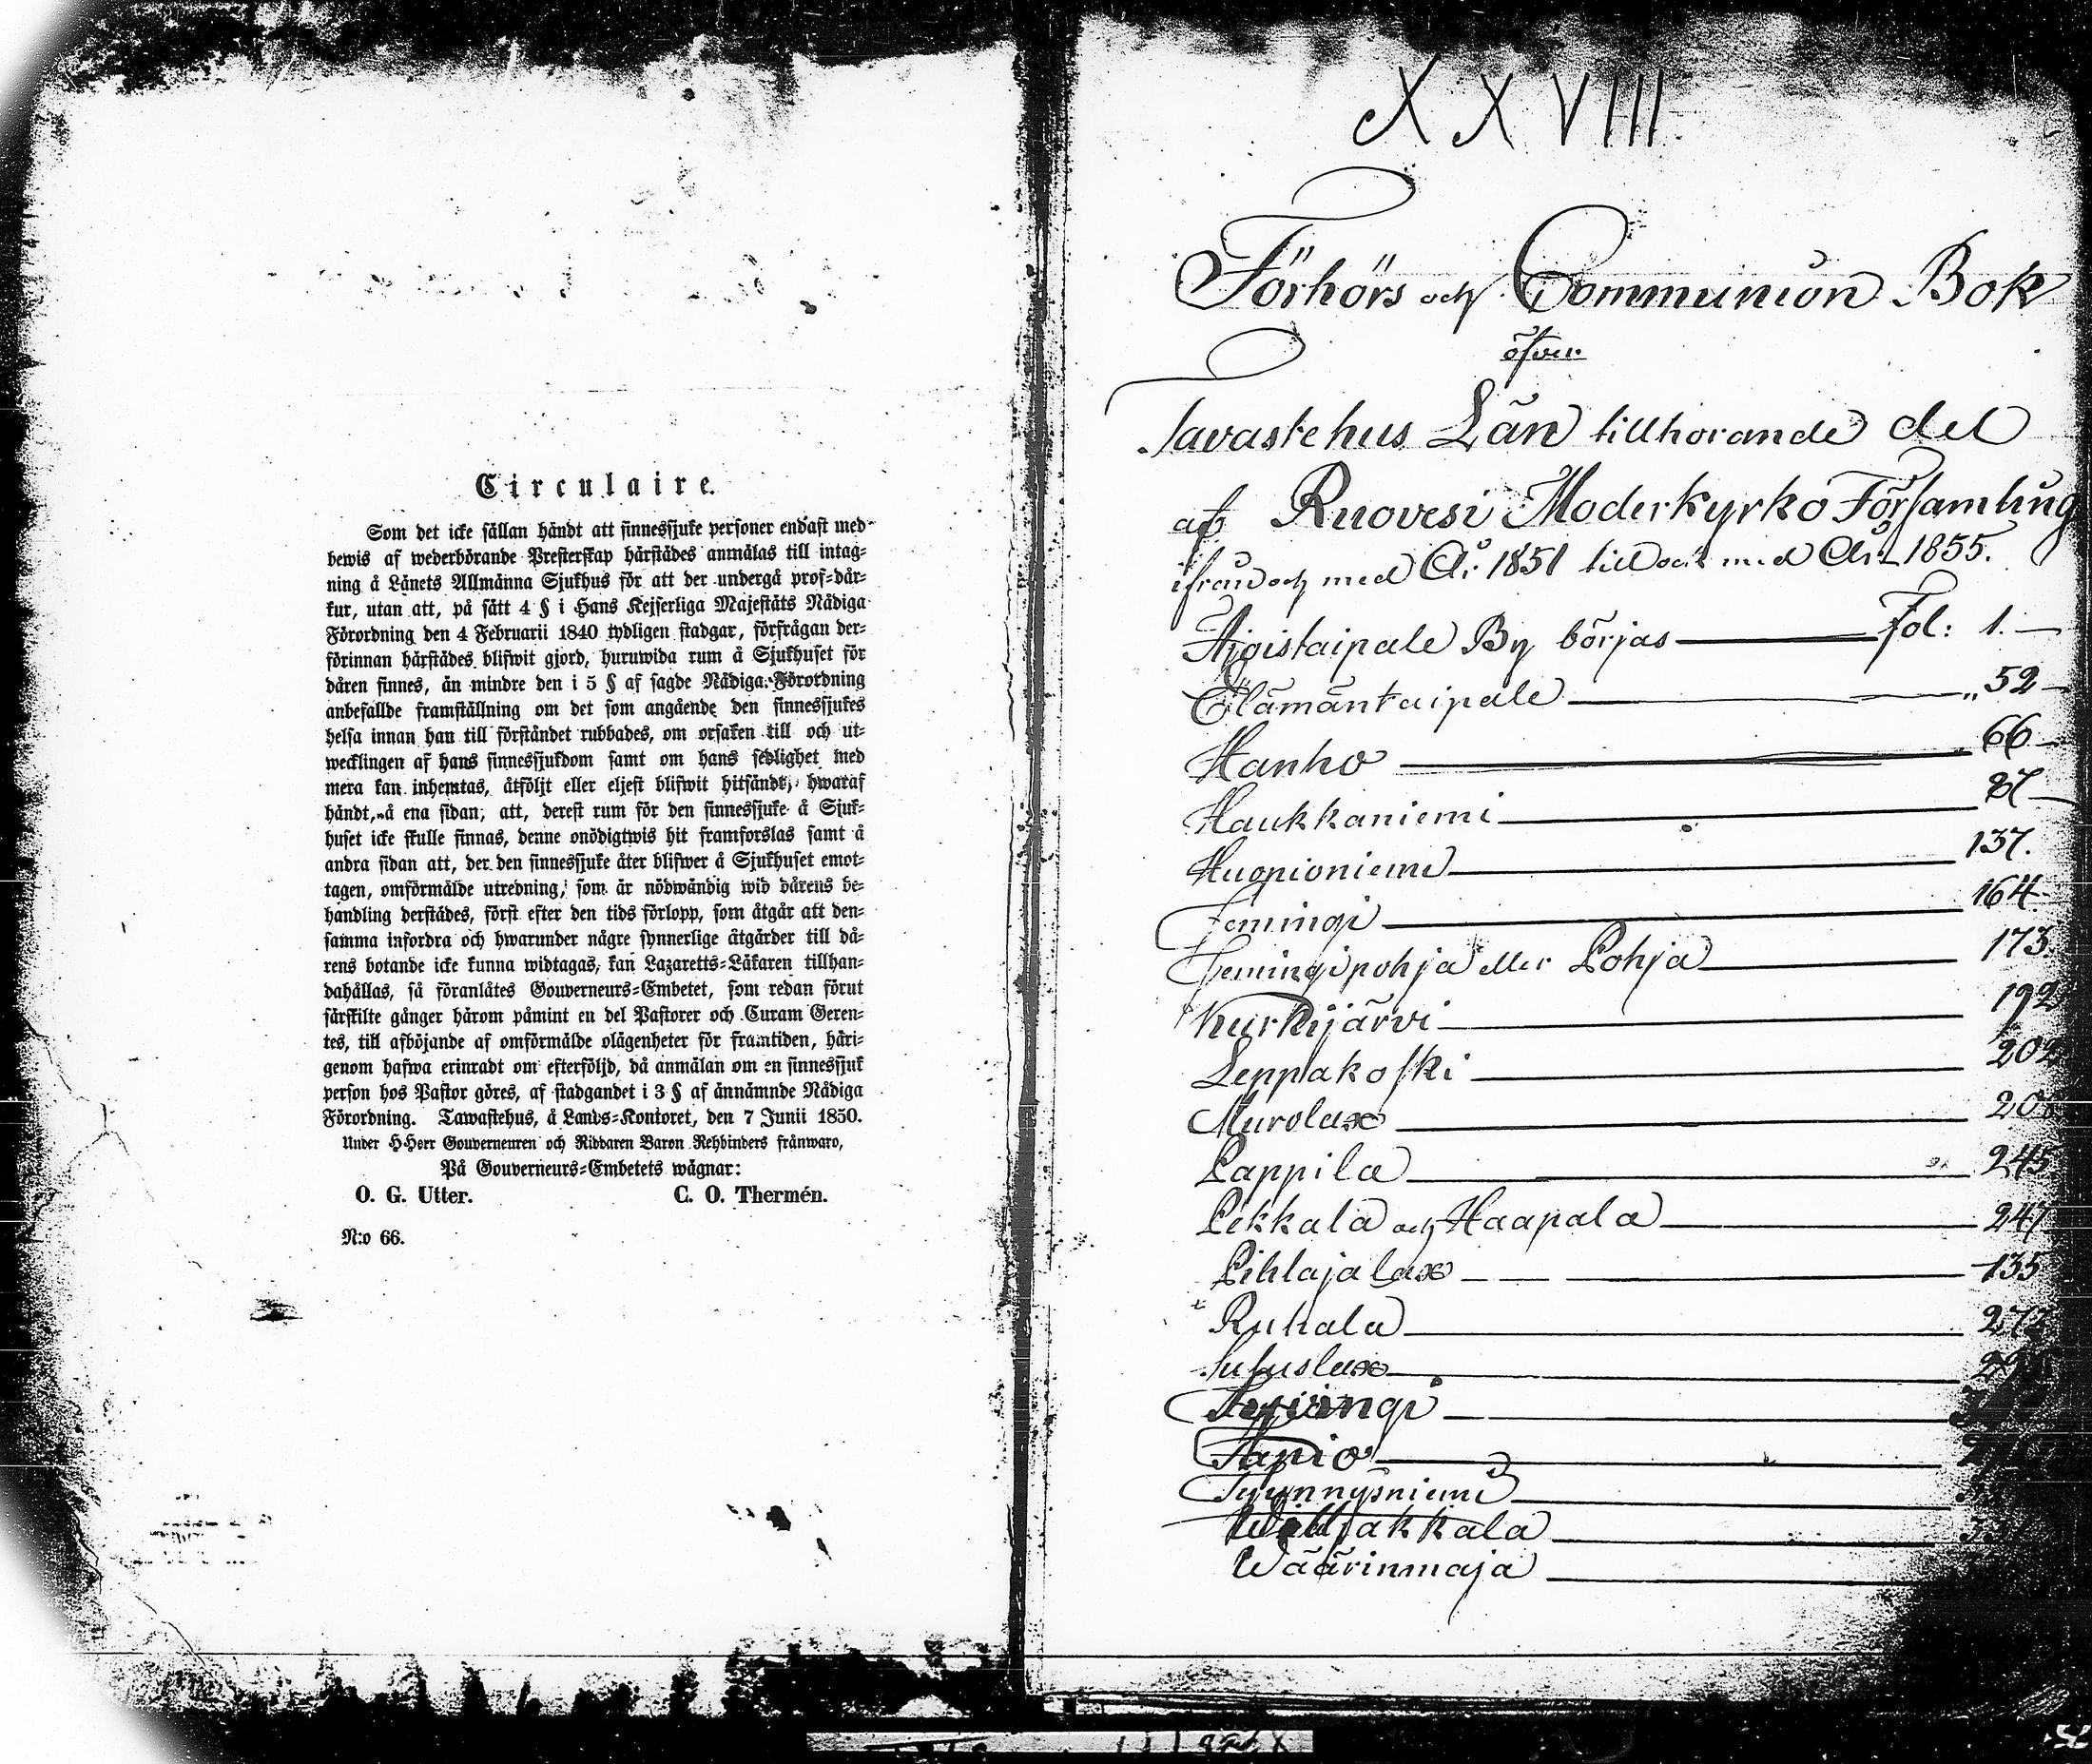 Circulaire.
Som det icke sällan händt att sinnessjuke personer endast med
bewis af wederbörande Presterskap härstädes anmälas till intag-
ning å Länets Allmänna Sjukhus för att der undergå prof-där-
kur, utan att, på sätt 4 § i Hans Kejserliga Majestäts Nådiga
Förordning den 4 Februarii 1840 tydligen stadgar, förfrågan der-
förinnan härstädes blifwit gjord, huruwida rum å Sjukhuset för
dåren finnes, än mindre den i 5 § af sagde Nådiga Förordning
anbefallde framställning om det som angående den sinnessjukes
helsa innan han till förståndet rubbades, om orsaken till och ut-
wecklingen af hans sinnessjukdom samt om hans sedlighet med
mera kan inhemtas, åtföljt eller eljest blifwit hitsändt, hwaraf
händt, å ena sidan, att, derest rum för den sinnessjuke å Sjuk-
huset icke skulle finnas, denne onödigtwis hit framforslas samt å
andra sidan att, der den sinnessjuke åter blifwer å Sjukhuset emot-
tagen, omförmälde utredning, som är nödwändig wid dårens be-
handling derstädes, först efter den tids förlopp, som åtgår att den-
samma infordra och hwarunder någre synnerlige åtgärder till då-
rens botande icke kunna widtagas, kan Lazaretts-Läkaren tillhan-
dahållas, så föranlåtes Gouverneurs-Embetet, som redan förut
särskilte gånger härom påmint en del Pastorer och Curam Geren-
tes, till afböjande af omförmälde olägenheter för framtiden, häri-
genom hafwa erinradt om efterföljd, då anmälan om en sinnessjuk
person hos Pastor göres, af stadgandet i 3 § af ännämnde Nådiga
Förordning. Tawastehus, å Lands-Kontoret, den 7 Junii 1850.
Under HHerr Gouverneuren och Riddaren Baron Rehbinders frånwaro,
På Gouverneurs-Embetets wägnar:
O. G. Utter. C. O. Thermén.
N:o 66.
XXVIII.
Förhörs och Communion Bok
öfver
Tavastehus Län tillhörande del
af Ruovesi Moderkyrko Församling
ifrån och med År 1851 till och med År 1855.
Ajoistaipale By börjas Fol: 1.
Elämäntaipale " 52
Hanho 66
Haukkaniemi 87
Huopioniemi 137.
Jemingi 164.
Jemingipohja eller Pohja 173.
Kurkijärvi 192
Leppäkoski 202
Murolax
Pappila 245
Pekkala och Haapala 247
Pihlajalax 135
Ruhala
Sutuslax
Tapio
Tyynnysniemi
Willjakkala
Wäärinmaja